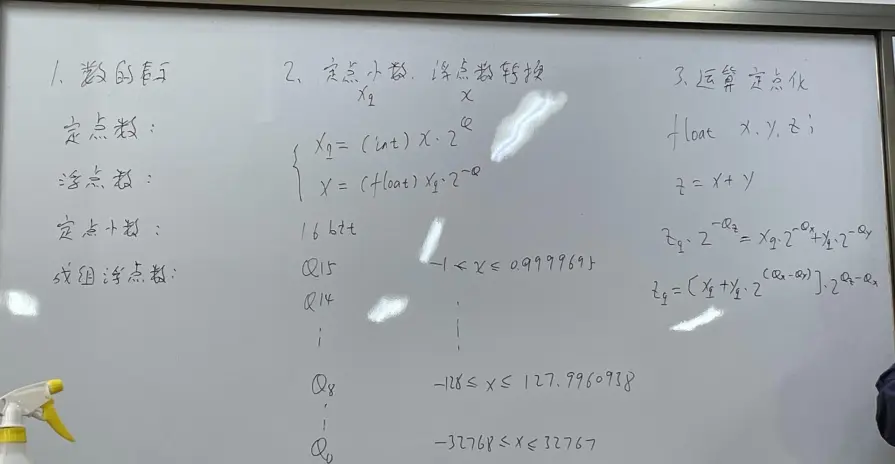 1、数的表示
定点数：
浮点数：
定点小数：
成组浮点数：
2、定点小数、浮点数转换
x_q x
x_q = (int) x · 2^Q
x = (float) x_q · 2^-Q
16 bit
Q15 -1 ≤ x ≤ 0.9999695
Q14
⋮ ⋮
Q8 -128 ≤ x ≤ 127.9960938
⋮
Q0 -32768 ≤ x ≤ 32767
3、运算定点化
float x, y, z;
z = x + y
z_q · 2^-Qz = x_q · 2^-Qx + y_q · 2^-Qy
z_q = [x_q + y_q · 2^(Qx-Qy)] · 2^Qz-Qx